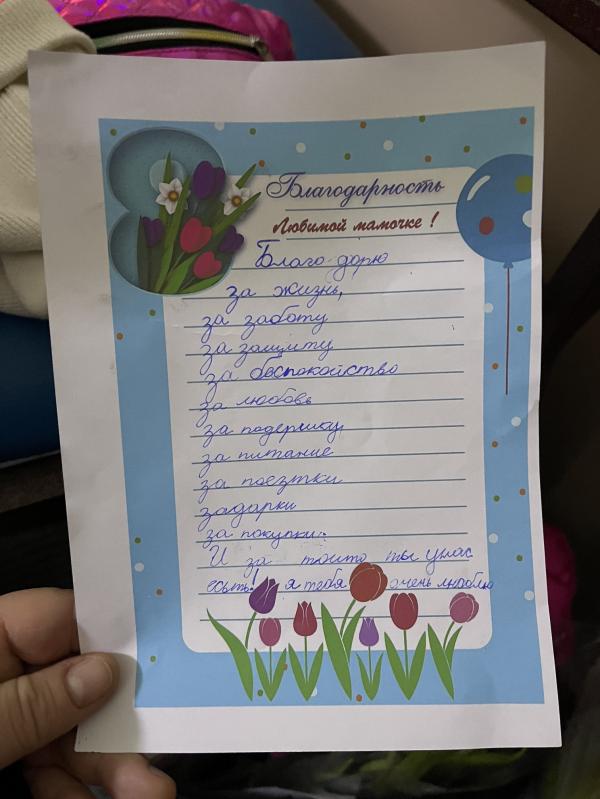 Благодарность
Любимой мамочке!
Благо дорю
за жизнь,
за заботу
за защиту
за беспокойство
за любовь
за подержку,
за питание
за поезтки
задарки
за покупки.
И за тоито ты унас
есьть! я тебя очень люблю